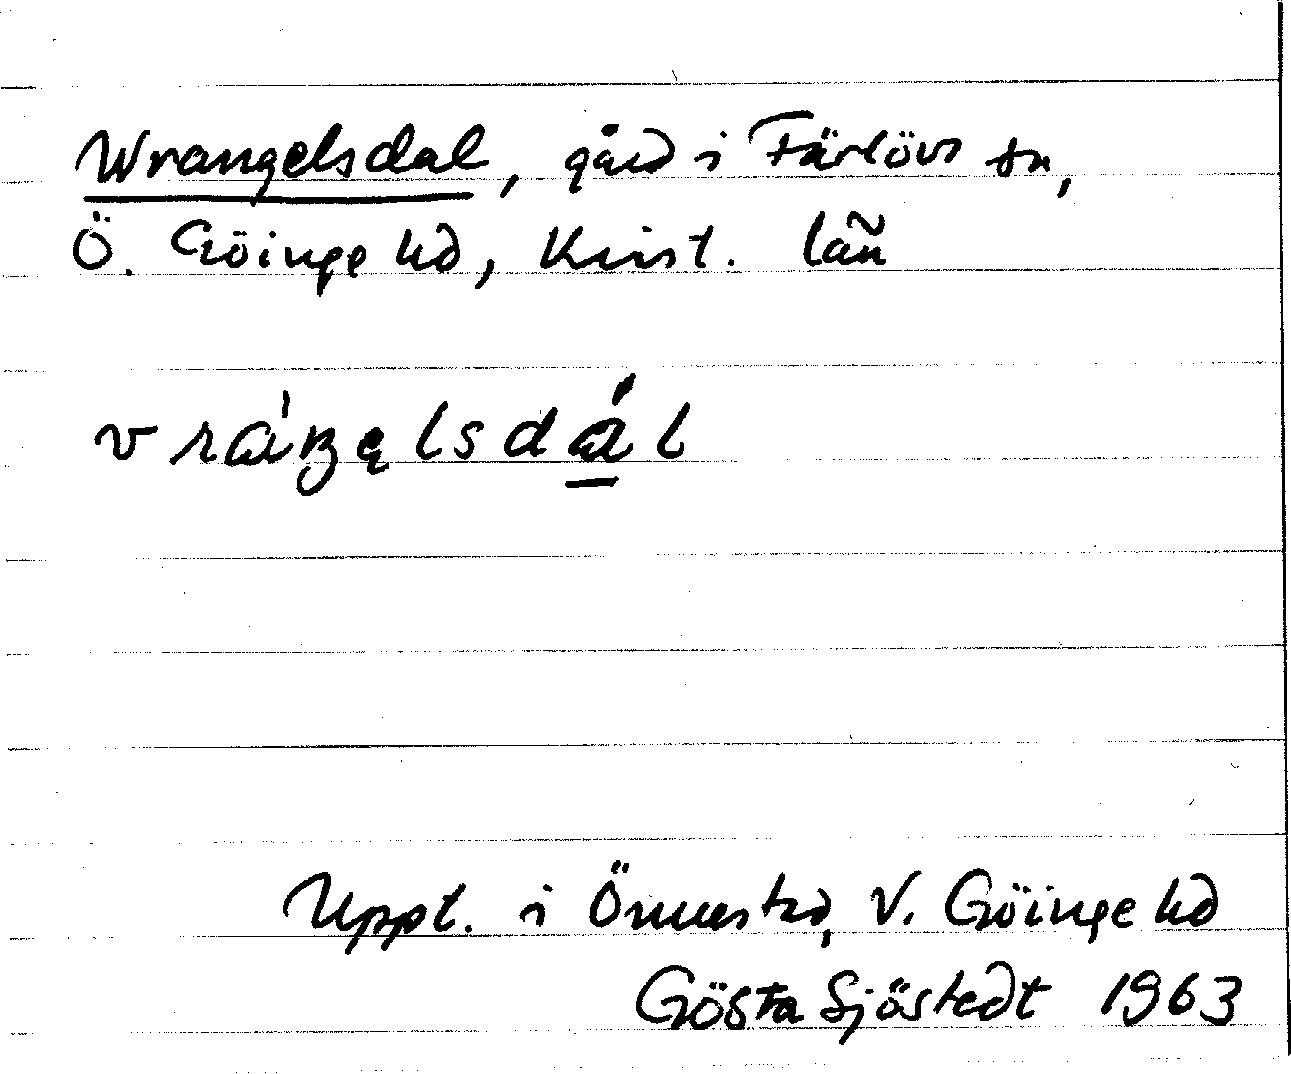 Wrangelsdal, gård i Färlövs sn,
Ö. Göinge hd, Krist. län
vráŋęlsdál
Uppt. i Önnestad, V. Göinge hd
Gösta Sjöstedt 1963